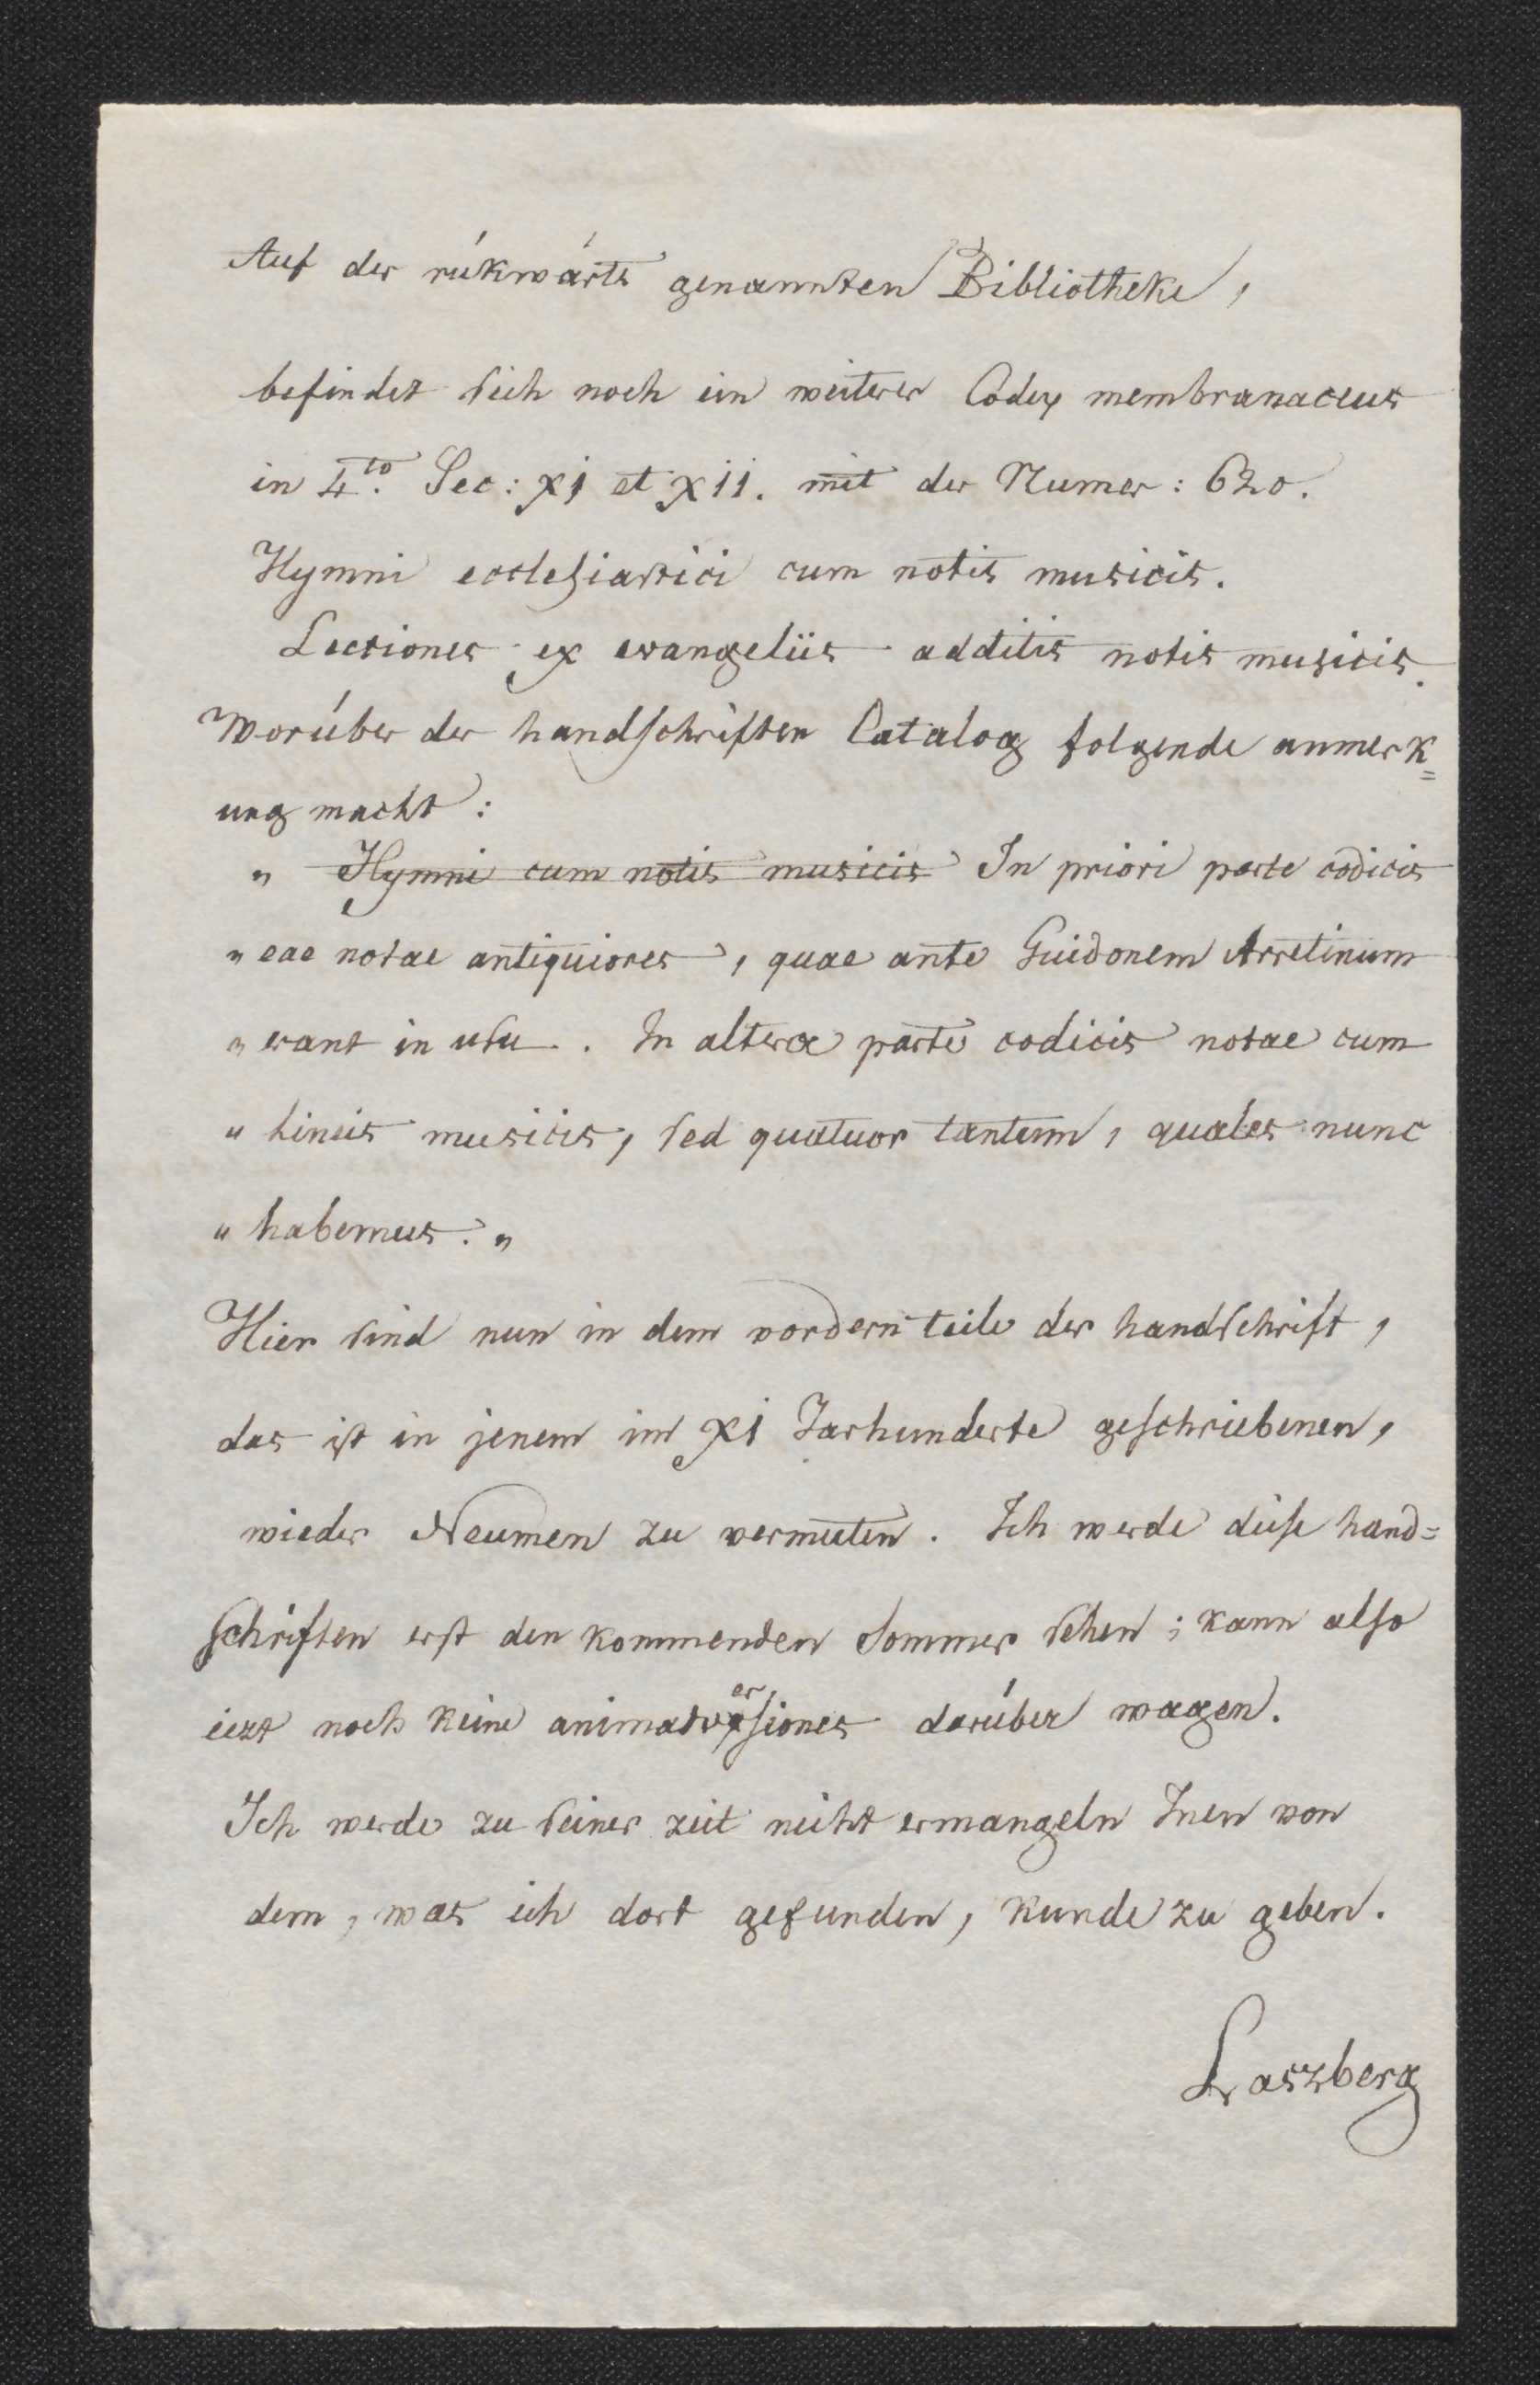 Auf der rúkwárts genannten Bibliotheke,
befindet sich noch ein weiterer Codex membranaceus
in 4to. Sec: XI et XII. mit der Numer: 620.
Hymni ecclesiastici cum notis musicis.
Lectiones ex evangeliis additis notis musicis.
Worúber der handschriften Catalog folgende anmerk=
ung macht:
„ Hymni cum notis musicis In priori parte codicis
„ eae notae antiquiores, quae ante Guidonem Arretinum
„ erant in usu. In altera parte codicis notae cum
„ lineis musicis, sed quatuor tantum, quales nunc
„ habemus. „
Hier sind nun in dem vordern teile der handschrift,
das ist in jenem im XI Jarhunderte geschriebenen,
wieder Neumen zu vermuten. Ich werde diese hand=
schriften erst den kommenden Sommer sehen; kann also
iezt noch keine animadversiones darúber wagen.
Ich werde zu seiner zeit nicht ermangeln Inen von
dem, was ich dort gefunden, kunde zu geben.
Laszberg